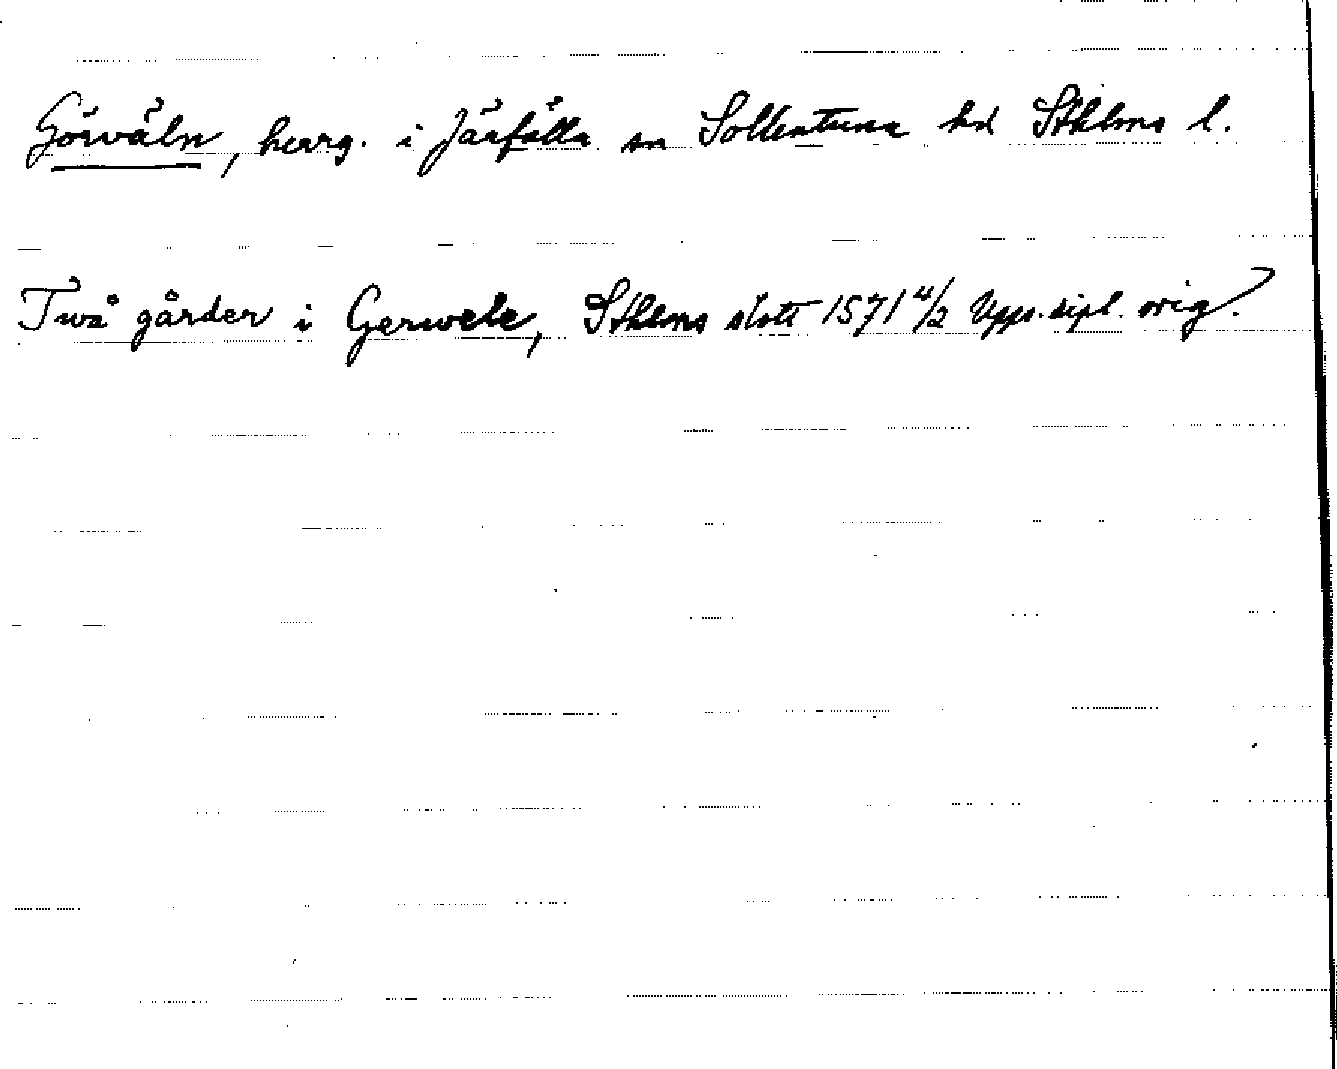 Görväln, herrg. i Järfälla sn Sollentuna hd Sthlms l.
Twå gårder i Gerwele, Sthlms slott 1571 4/2 Upps. dipl. orig.